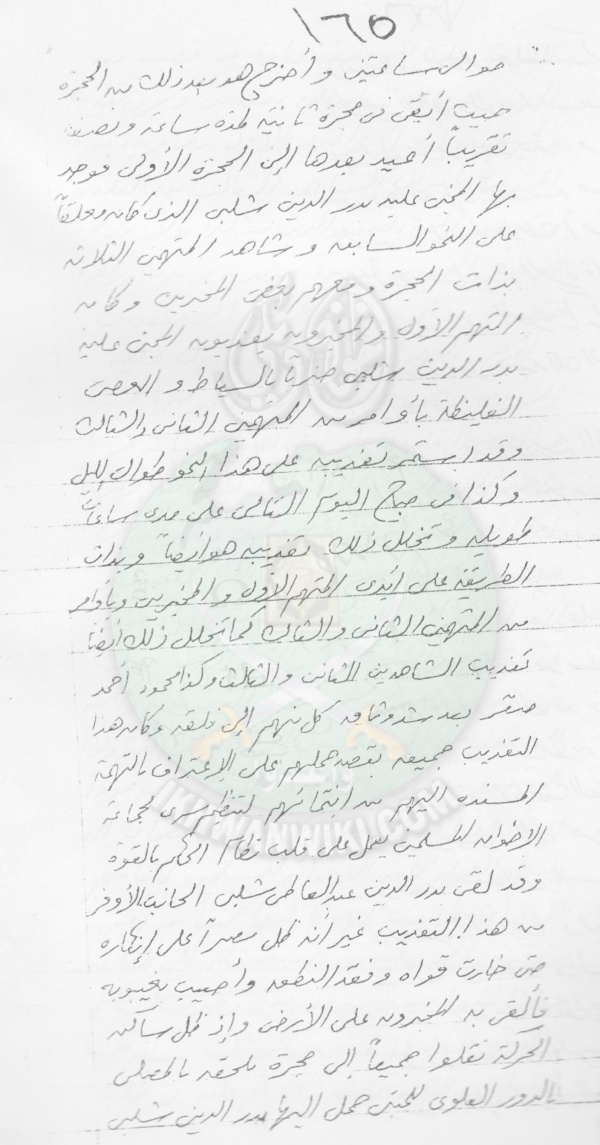 ١٦٥
حوالى ساعتين وأخرج هو بعد ذلك من الحجرة
حيث أبقى فى حجرة ثانية لمدة ساعة ونصف
تقريباً أعيد بعدها إلى الحجرة الأولى فوجد
بها المجنى عليه بدر الدين شلبى الذى كان معلقاً
على النحو السابق وشاهد المتهمين الثلاثة
بذات الحجرة ومعهم بعض المخبرين وكان
المتهم الأول والمخبرون يعذبون المجنى عليه
بدر الدين شلبى ضرباً بالسياط والعصى
الغليظة بأوامر من المتهمين الثانى والثالث
وقد استمر تعذيبه على هذا النحو طوال الليل
وكذا فى صباح اليوم التالى على مدى ساعات
طويلة وتخلل ذلك تعذيبه هو أيضاً وبذات
الطريقة على أيدى المتهم الأول والمخبرين وبأوامر
من المتهمين الثانى والثالث كما تخلل ذلك أيضاً
تعذيب الشاهدين الثانى والثالث وكذا محمود أحمد
صقر بعد شد وثاق كل منهم إلى فلقه وكان هذا
التعذيب جميعه بقصد حملهم على الإعتراف بالتهمة
المسنده اليهم من انتمائهم لتنظيم سرى لجماعة
الاخوان المسلمين يعمل على قلب نظام الحكم بالقوة
وقد لقى بدر الدين عبد العاطى شلبى الجانب الأوفر
من هذا التعذيب غير أنه ظل مصراً على إنكاره
حتى خارت قواه وفقد النطق وأصيب بغيبوبه
فألقى به المخبرون على الأرض وإذ ظل ساكن
الحركة نقلوا جميعاً إلى حجرة ملحقه بالمصلى
بالدور العلوى للمبنى حمل اليها بدر الدين شلبى
IKHWANWIKI.COM